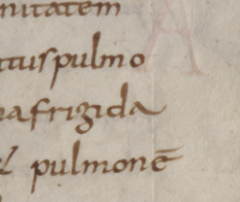 nitatem
tus pulmo
a frigida
& pulmonē